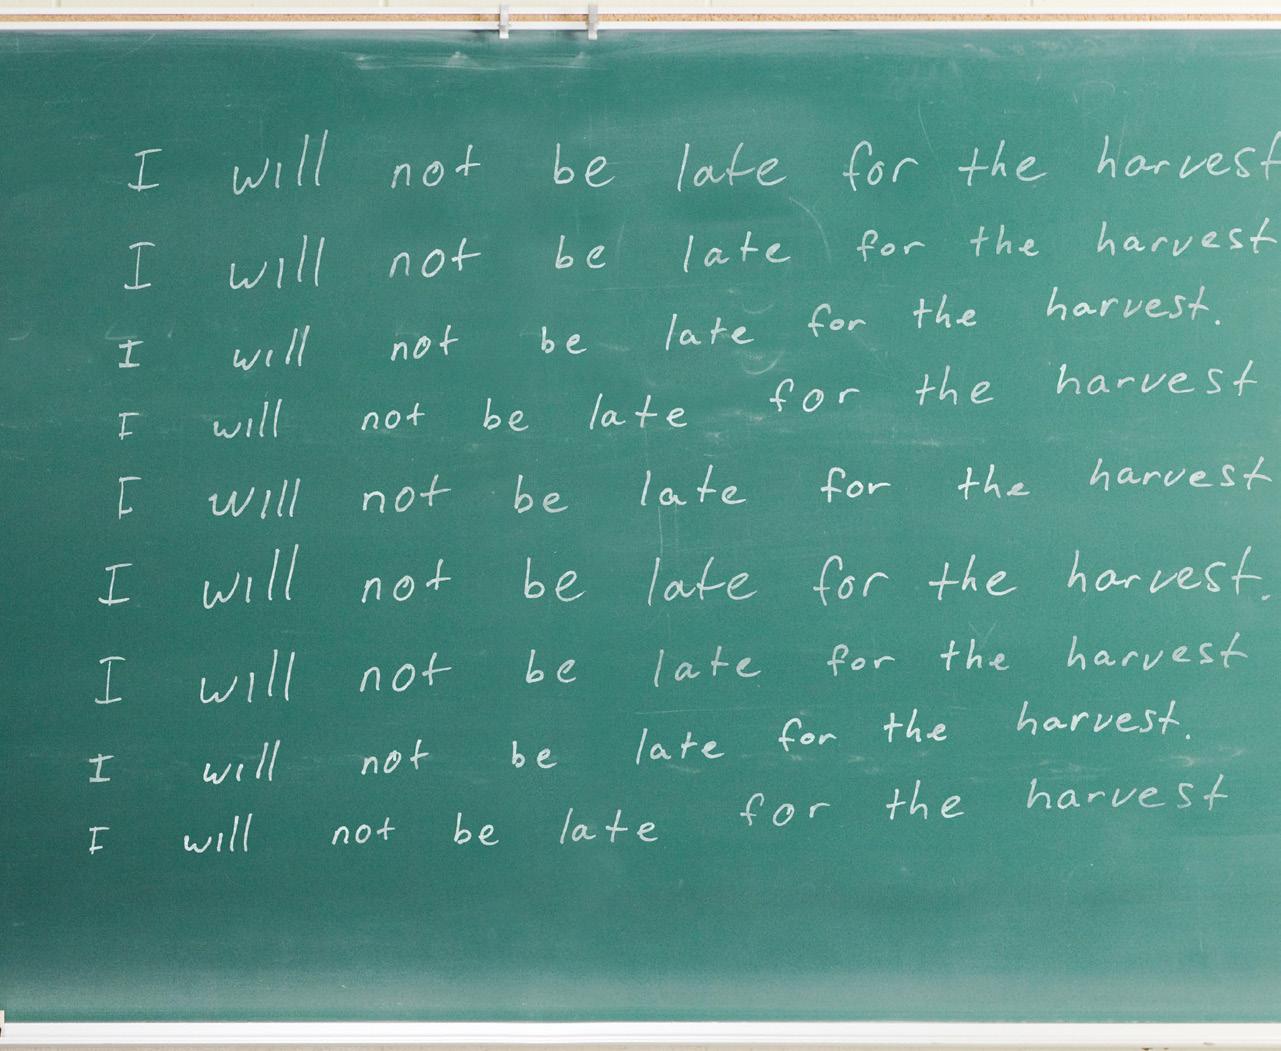 I will not be late for the harvest
I will not be late for the harvest
I will not be late for the harvest.
I will not be late for the harvest
I will not be late for the harvest
I will not be late for the harvest.
I will not be late for the harvest
I will not be late for the harvest.
I will not be late for the harvest